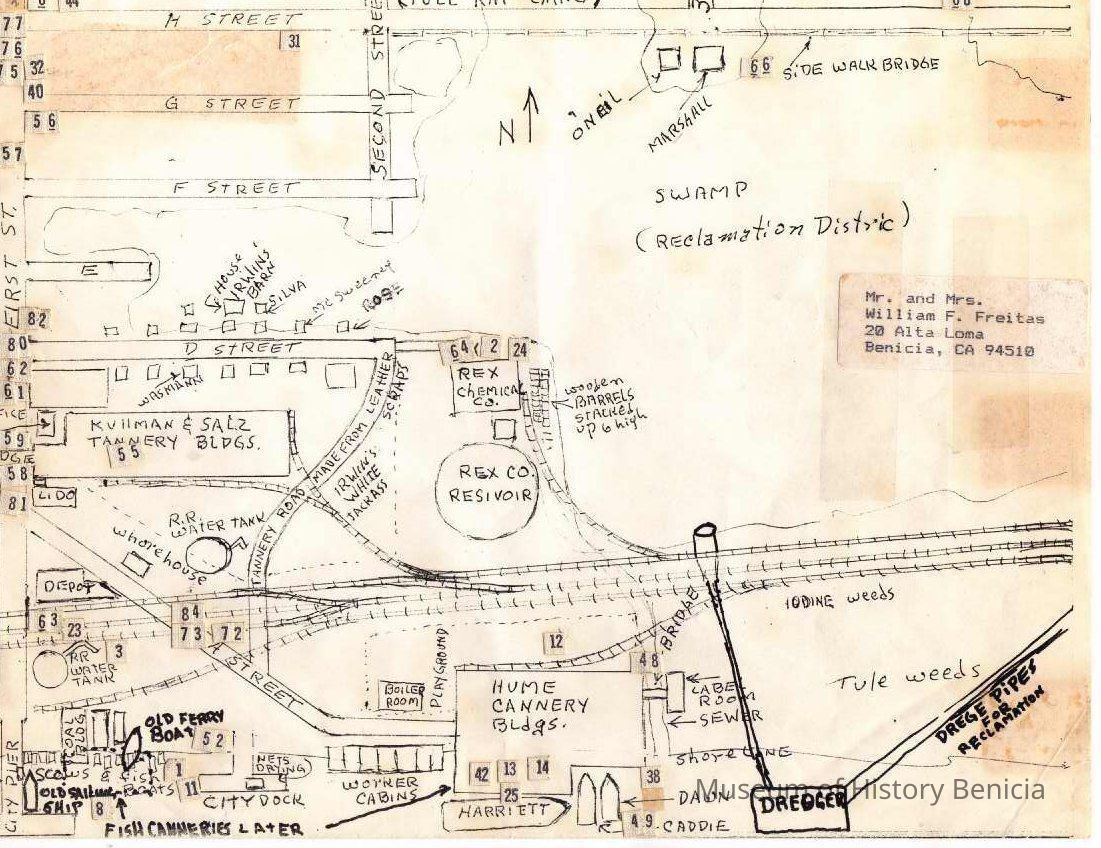 44
77
H STREET
31
76
75
32
40
G STREET
56
57
F STREET
SECOND STREET
N
ONEIL
MARSHALL
66
SIDE WALK BRIDGE
SWAMP
(REClamation Distric)
FIRST ST.
E
HOUSE
IRWINS'
BARN
SILVA
McSweeney
ROSE
Mr. and Mrs.
William F. Freitas
20 Alta Loma
Benicia, CA 94510
82
80
D STREET
62
61
WASMANN
64
2
24
REX
CHEMICAL
CO.
wooden
BARRELS
STACKED
UP 6 high
KULLMAN & SALZ
TANNERY BLDGS.
55
59
58
LIDO
81
TANNERY ROAD MADE FROM LEATHER
SCRAPS
IRWIN'S
WHITE
JACKASS
REX CO.
RESIVOIR
R.R.
WATER TANK
whorehouse
DEPOT
63
23
3
84
73
72
A STREET
RR
WATER
TANK
IODINE weeds
BRIDGE
12
48
PLAYGROUND
BOILER
ROOM
HUME
CANNERY
Bldgs.
LABEL
ROOM
SEWER
Tule weeds
DREGE PIPES
FOR
RECLAMATION
SHORE LINE
COAL
BLDG
OLD FERRY
BOAT
52
NETS
DRYING
CITY PIER
SCOWS & FISH
BOATS
1
11
OLD SAILING
SHIP
8
CITY DOCK
WORKER
CABINS
FISH CANNERIES LATER
42
13
14
25
HARRIETT
38
DAWN
49
CADDIE
DREDGER
Museum of History Benicia